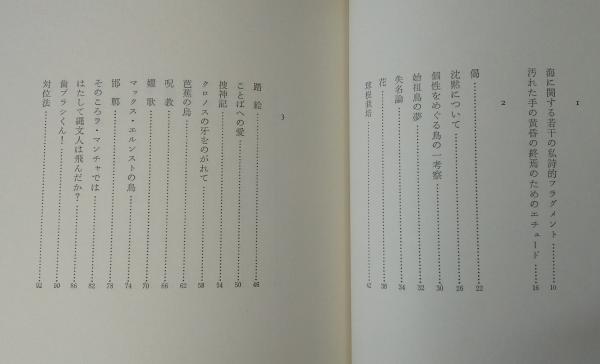 1
海に関する若干の私詩的フラグメント……10
汚れた手の黄昏の終焉のためのエチュード……16
2
偈……22
沈黙について……26
個性をめぐる鳥の一考察……30
始祖鳥の夢……32
失名論……34
花……38
球根栽培……42
3
踏絵……46
ことばへの愛……50
捜神記……54
クロノスの牙をのがれて……58
芭蕉の鳥……62
呪教……66
嬥歌……70
マックス・エルンストの鳥……74
邯鄲……78
そのころラ・マンチャでは……82
はたして縄文人は飛んだか?……86
歯ブラシくん!……90
対位法……92